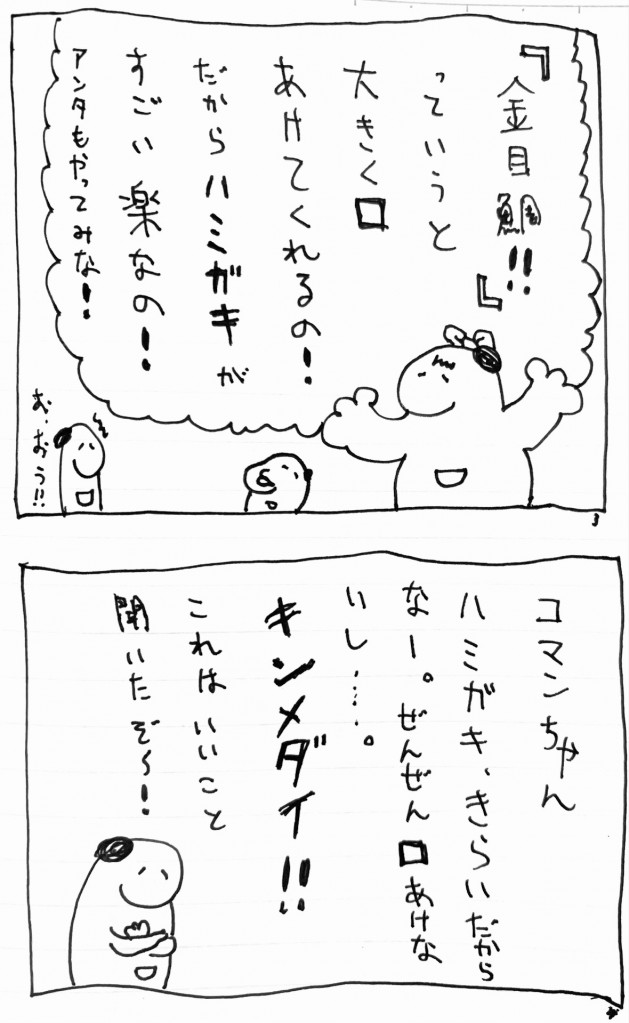 『金目鯛!!』
っていうと
大きく口
あけてくれるの!
だからハミガキが
すごい楽なの!
アンタもやってみな!
お、おう!!
3
コマンちゃん
ハミガキ、きらいだから
なー。ぜんぜん口あけな
いし……。
キンメダイ!!
これはいいこと
聞いたぞ〜!